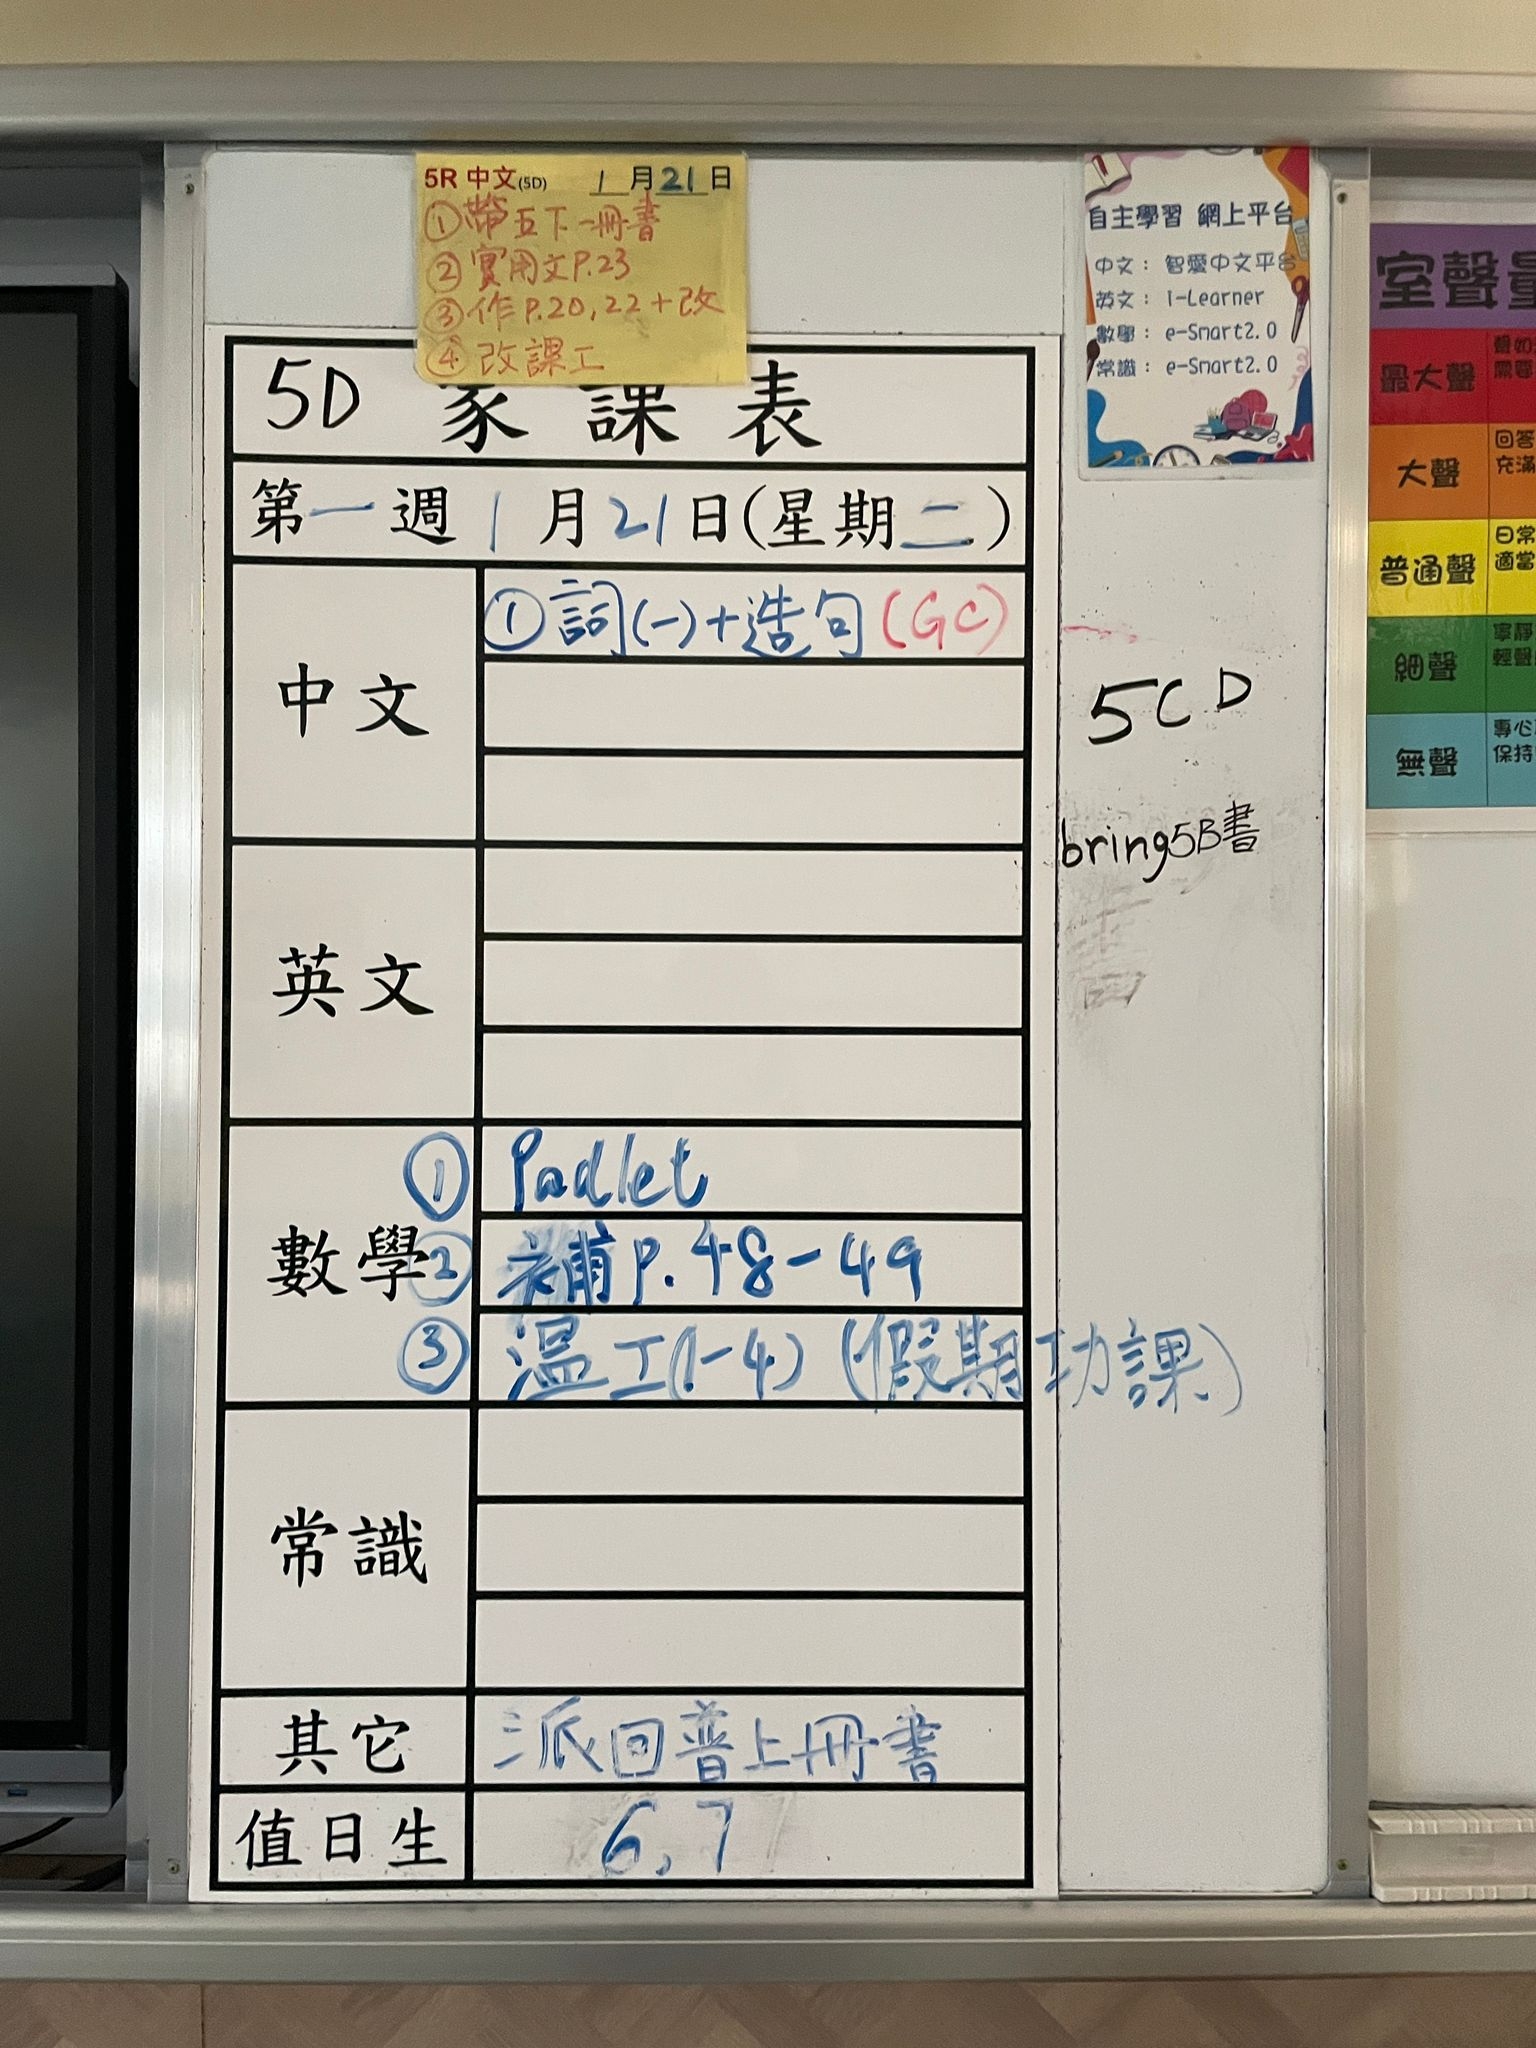 5R 中文(5D) 1月21日
①帶五下一冊書
②實用文P.23
③作P.20,22+改
④改課工
5D 家課表
第一週 1月21日(星期二)
中文
①詞(一)+造句(GC)
英文
數學
① Padlet
② 補P.48-49
③ 溫工(1-4)(假期功課)
常識
其它
派回普上冊書
值日生
6,7
自主學習 網上平台
中文: 智愛中文平台
英文: i-Learner
數學: e-Smart2.0
常識: e-Smart2.0
5CD
bring5B書
室聲量
最大聲
大聲
回答
充滿
普通聲
日常
適當
細聲
寧靜
輕聲
無聲
專心
保持